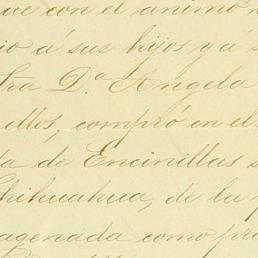 que con el animo
io á sus hijos y á s
tra D.ª Angela
illos, compró en el
da de Encinillas s
Chihuahua, de la
agenada como pro